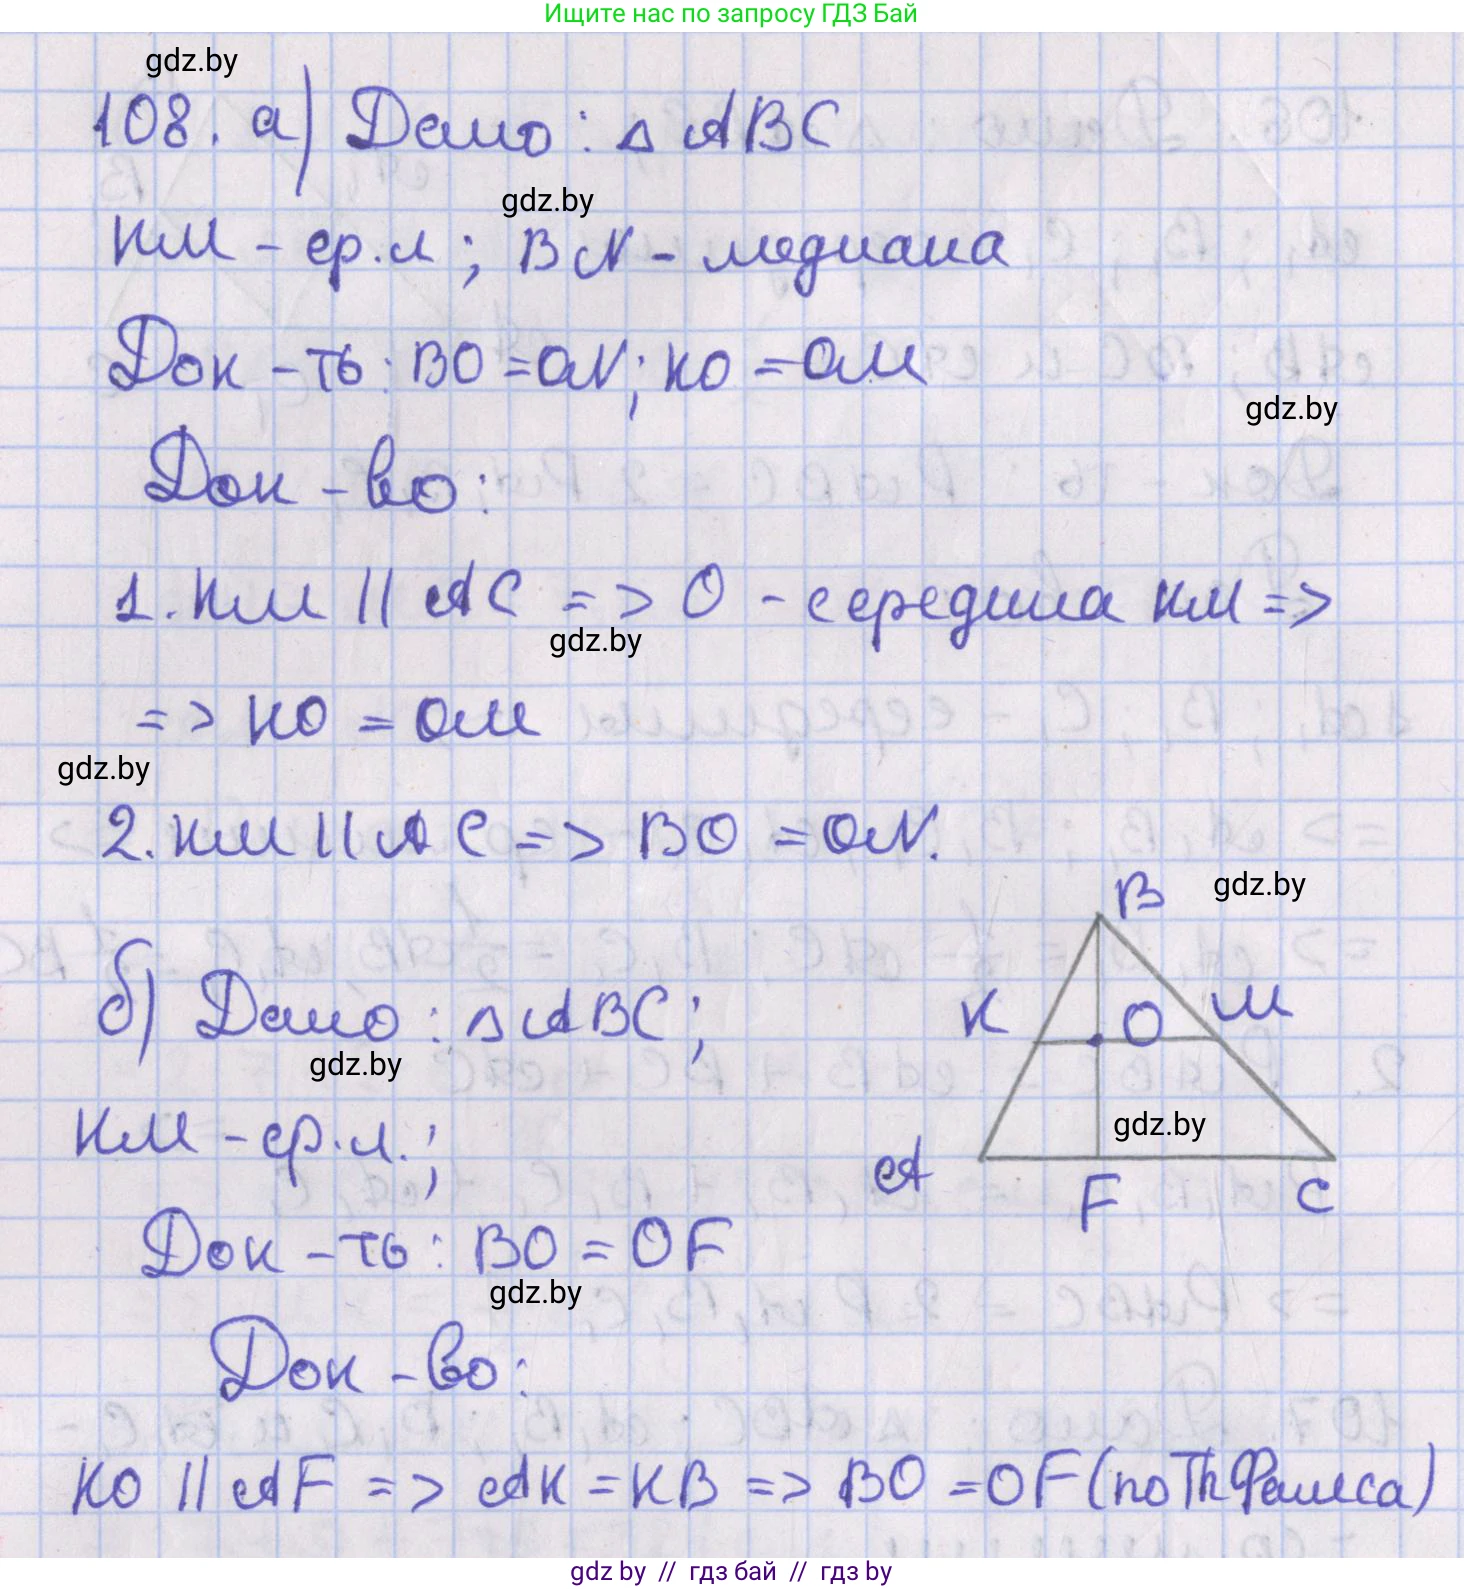 Ищите нас по запросу ГДЗ Бай
gdz.by
108. а) Дано: △ ABC
gdz.by
KM - ср.л; BN - медиана
Док-ть: BO = ON; KO = OM
gdz.by
Док-во:
1. KM || AC => O - середина KM =>
gdz.by
=> KO = OM
gdz.by
2. KM || AC => BO = ON.
gdz.by
B
K
O
M
A
F
C
gdz.by
б) Дано: △ ABC;
gdz.by
KM - ср.л.;
Док-ть: BO = OF
gdz.by
Док-во:
KO || AF => AK = KB => BO = OF (по Th Фалеса)
gdz by // гдз бай // гдз by